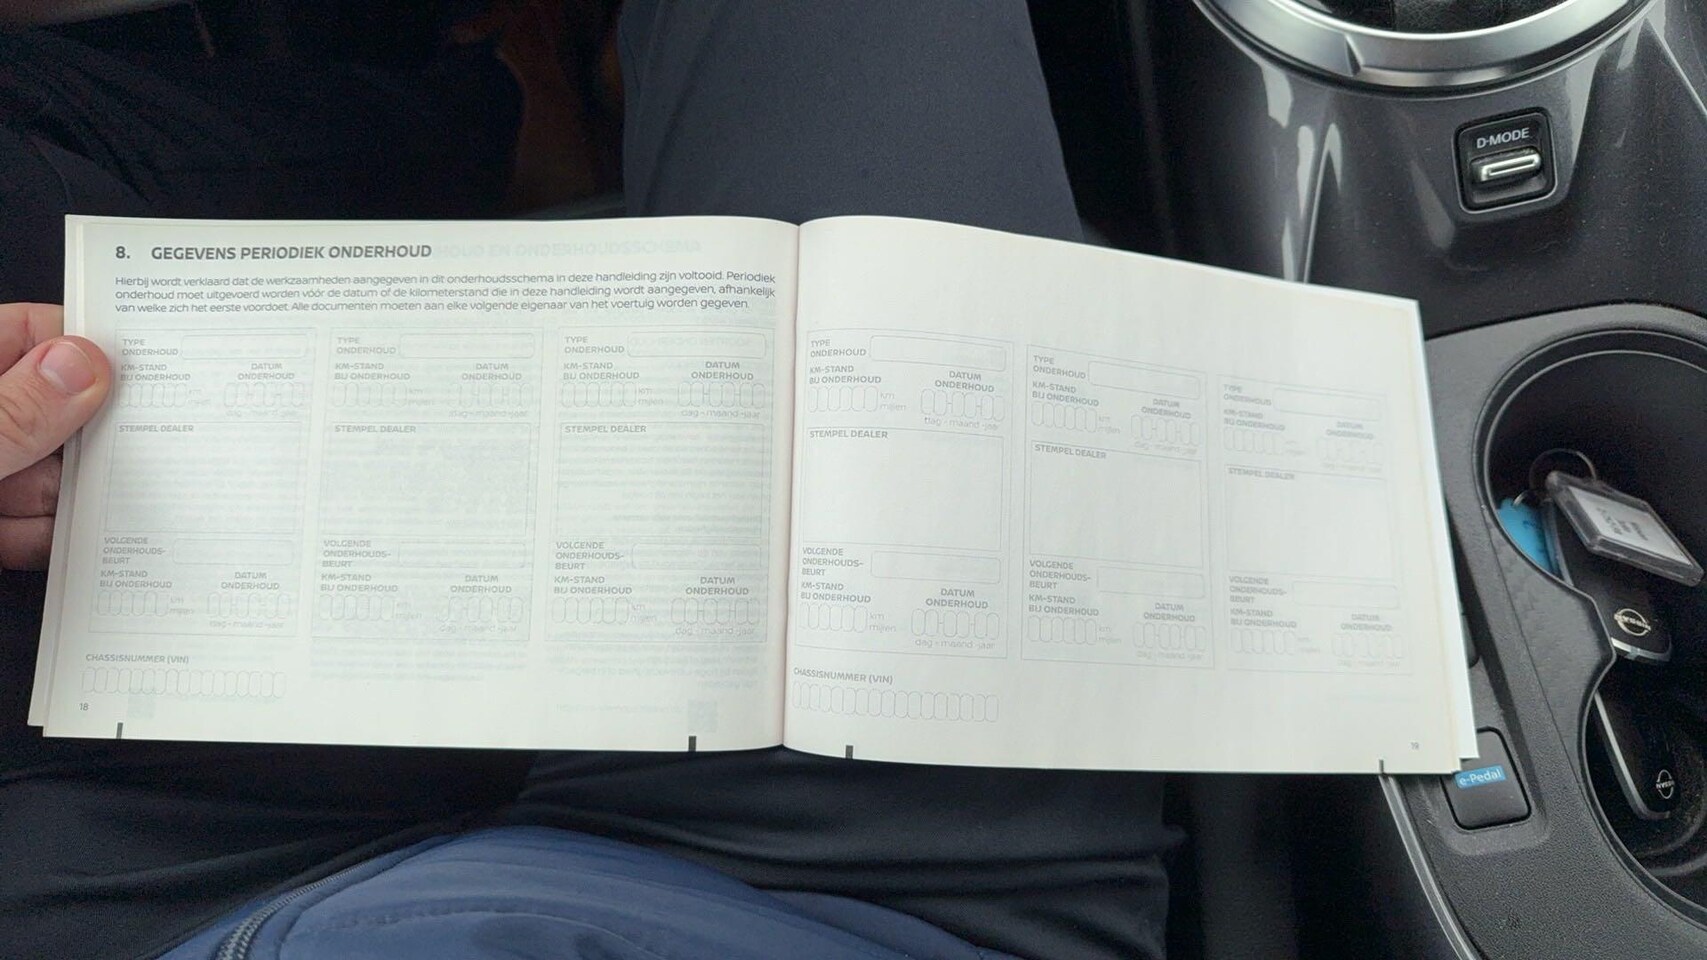 8. GEGEVENS PERIODIEK ONDERHOUD
Hierbij wordt verklaard dat de werkzaamheden aangegeven in dit onderhoudsschema in deze handleiding zijn voltooid. Periodiek
onderhoud moet uitgevoerd worden vóór de datum of de kilometerstand die in deze handleiding wordt aangegeven, afhankelijk
van welke zich het eerste voordoet. Alle documenten moeten aan elke volgende eigenaar van het voertuig worden gegeven.
TYPE
ONDERHOUD
KM-STAND
BIJ ONDERHOUD
DATUM
ONDERHOUD
km
mijlen
dag - maand -jaar
STEMPEL DEALER
VOLGENDE
ONDERHOUDS-
BEURT
KM-STAND
BIJ ONDERHOUD
DATUM
ONDERHOUD
km
mijlen
dag - maand -jaar
TYPE
ONDERHOUD
KM-STAND
BIJ ONDERHOUD
DATUM
ONDERHOUD
km
mijlen
dag - maand -jaar
STEMPEL DEALER
VOLGENDE
ONDERHOUDS-
BEURT
KM-STAND
BIJ ONDERHOUD
DATUM
ONDERHOUD
km
mijlen
dag - maand -jaar
TYPE
ONDERHOUD
KM-STAND
BIJ ONDERHOUD
DATUM
ONDERHOUD
km
mijlen
dag - maand -jaar
STEMPEL DEALER
VOLGENDE
ONDERHOUDS-
BEURT
KM-STAND
BIJ ONDERHOUD
DATUM
ONDERHOUD
km
mijlen
dag - maand -jaar
CHASSISNUMMER (VIN)
18
TYPE
ONDERHOUD
KM-STAND
BIJ ONDERHOUD
DATUM
ONDERHOUD
km
mijlen
dag - maand -jaar
STEMPEL DEALER
VOLGENDE
ONDERHOUDS-
BEURT
KM-STAND
BIJ ONDERHOUD
DATUM
ONDERHOUD
km
mijlen
dag - maand -jaar
TYPE
ONDERHOUD
KM-STAND
BIJ ONDERHOUD
DATUM
ONDERHOUD
km
mijlen
dag - maand -jaar
STEMPEL DEALER
VOLGENDE
ONDERHOUDS-
BEURT
KM-STAND
BIJ ONDERHOUD
DATUM
ONDERHOUD
km
mijlen
dag - maand -jaar
TYPE
ONDERHOUD
KM-STAND
BIJ ONDERHOUD
DATUM
ONDERHOUD
km
mijlen
dag - maand -jaar
STEMPEL DEALER
VOLGENDE
ONDERHOUDS-
BEURT
KM-STAND
BIJ ONDERHOUD
DATUM
ONDERHOUD
km
mijlen
dag - maand -jaar
CHASSISNUMMER (VIN)
19
D-MODE
e-Pedal
NISSAN
NISSAN